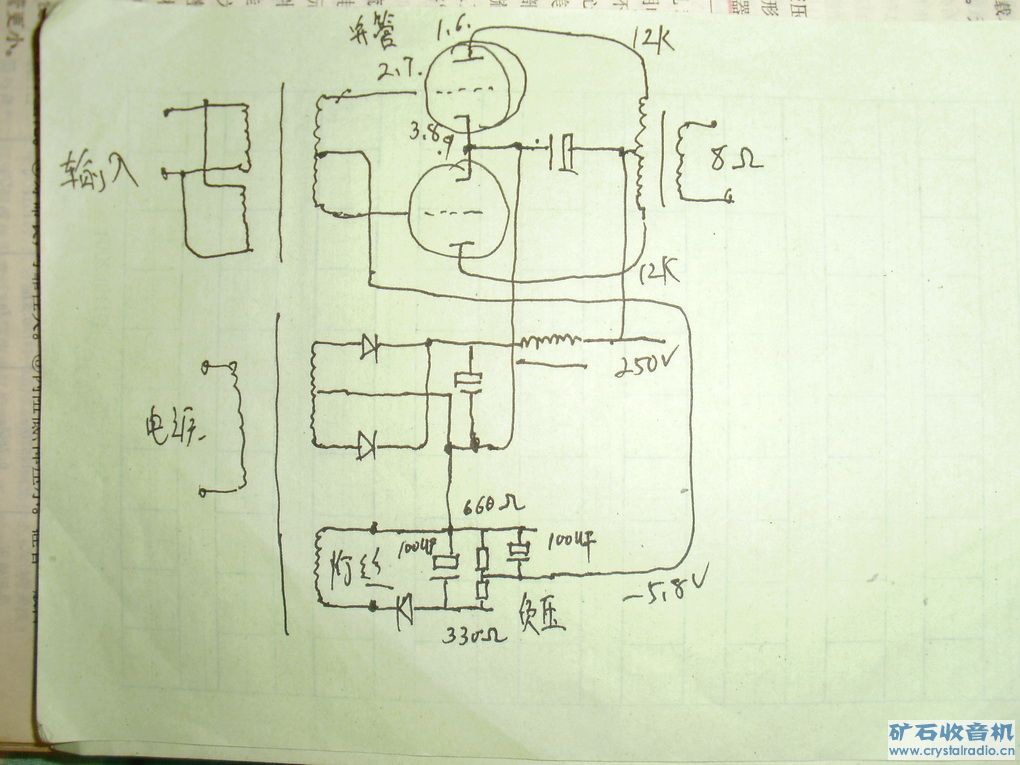 并管
1.6.
12K
2.7.
3.8
.9
输入
8Ω
12K
250V
电源
660Ω
100UF
100UF
灯丝
-5.8V
负压
330Ω
矿石收音机
www.crystalradio.cn